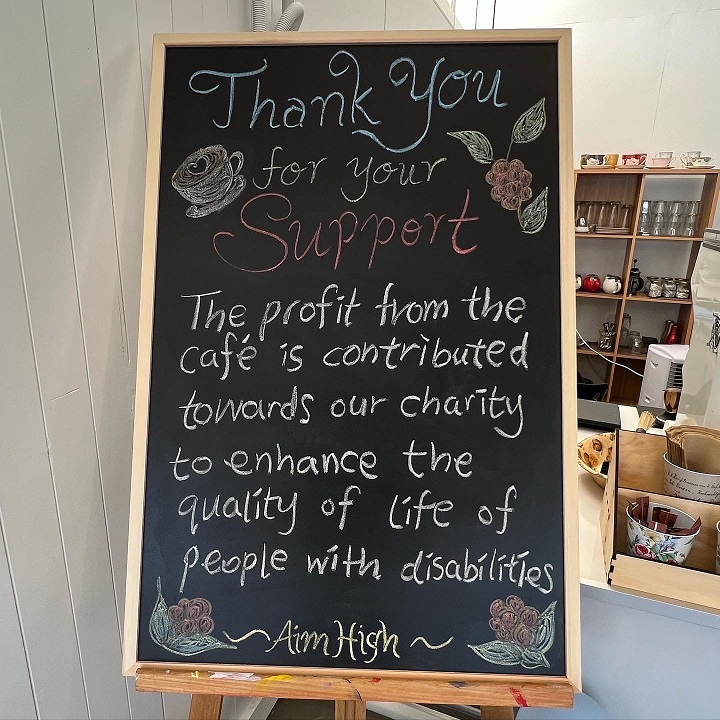 Thank You
for your
Support
The profit from the
café is contributed
towards our charity
to enhance the
quality of life of
people with disabilities
~ Aim High ~